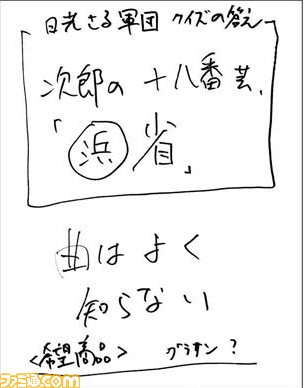 日光さる軍団 クイズの答え
次郎の 十八番芸、
「浜省」
曲はよく
知らない
<希望商品> グラサン?
ファミ通.com